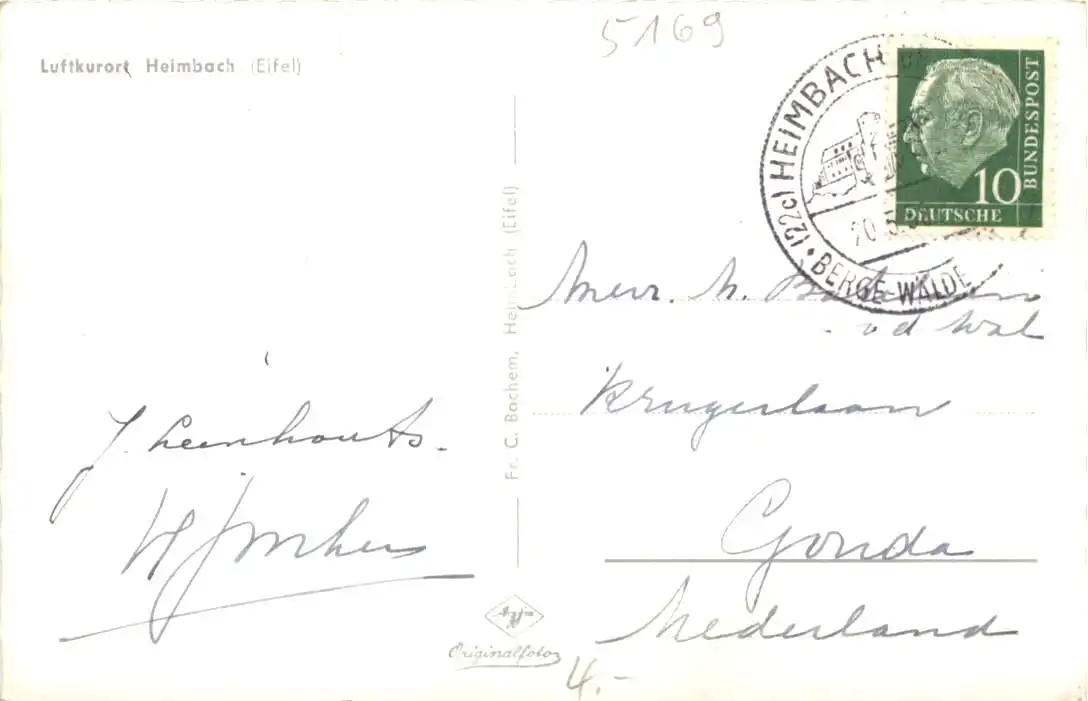 5169
Luftkurort Heimbach (Eifel)
(22c) HEIMBACH
20.5.
BERGE-WÄLDE
10
DEUTSCHE
BUNDESPOST
Mevr. M.
v d Wal
Krugerlaan
Gouda
Nederland
J. Leenhouts.
Fr. C. Bachem, Heimbach (Eifel)
Agfa
Originalfoto
4.-